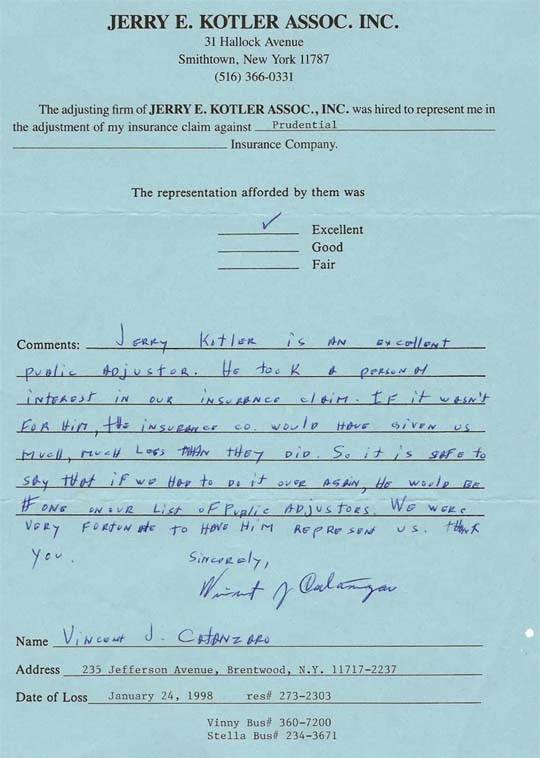 JERRY E. KOTLER ASSOC. INC.
31 Hallock Avenue
Smithtown, New York 11787
(516) 366-0331
The adjusting firm of JERRY E. KOTLER ASSOC., INC. was hired to represent me in
the adjustment of my insurance claim against Prudential
Insurance Company.
The representation afforded by them was
✓ Excellent
Good
Fair
Comments: Jerry Kotler is an excellent
public adjustor. He took a personal
interest in our insurance claim. If it wasn't
for him, the insurance co. would have given us
much, much less than they did. So it is safe to
say that if we had to do it over again, he would be
# one on our list of public adjustors. We were
very fortunate to have him represent us. Thank
you. Sincerely,
Vincent J Catanzaro
Name Vincent J. Catanzaro
Address 235 Jefferson Avenue, Brentwood, N.Y. 11717-2237
Date of Loss January 24, 1998 res# 273-2303
Vinny Bus# 360-7200
Stella Bus# 234-3671